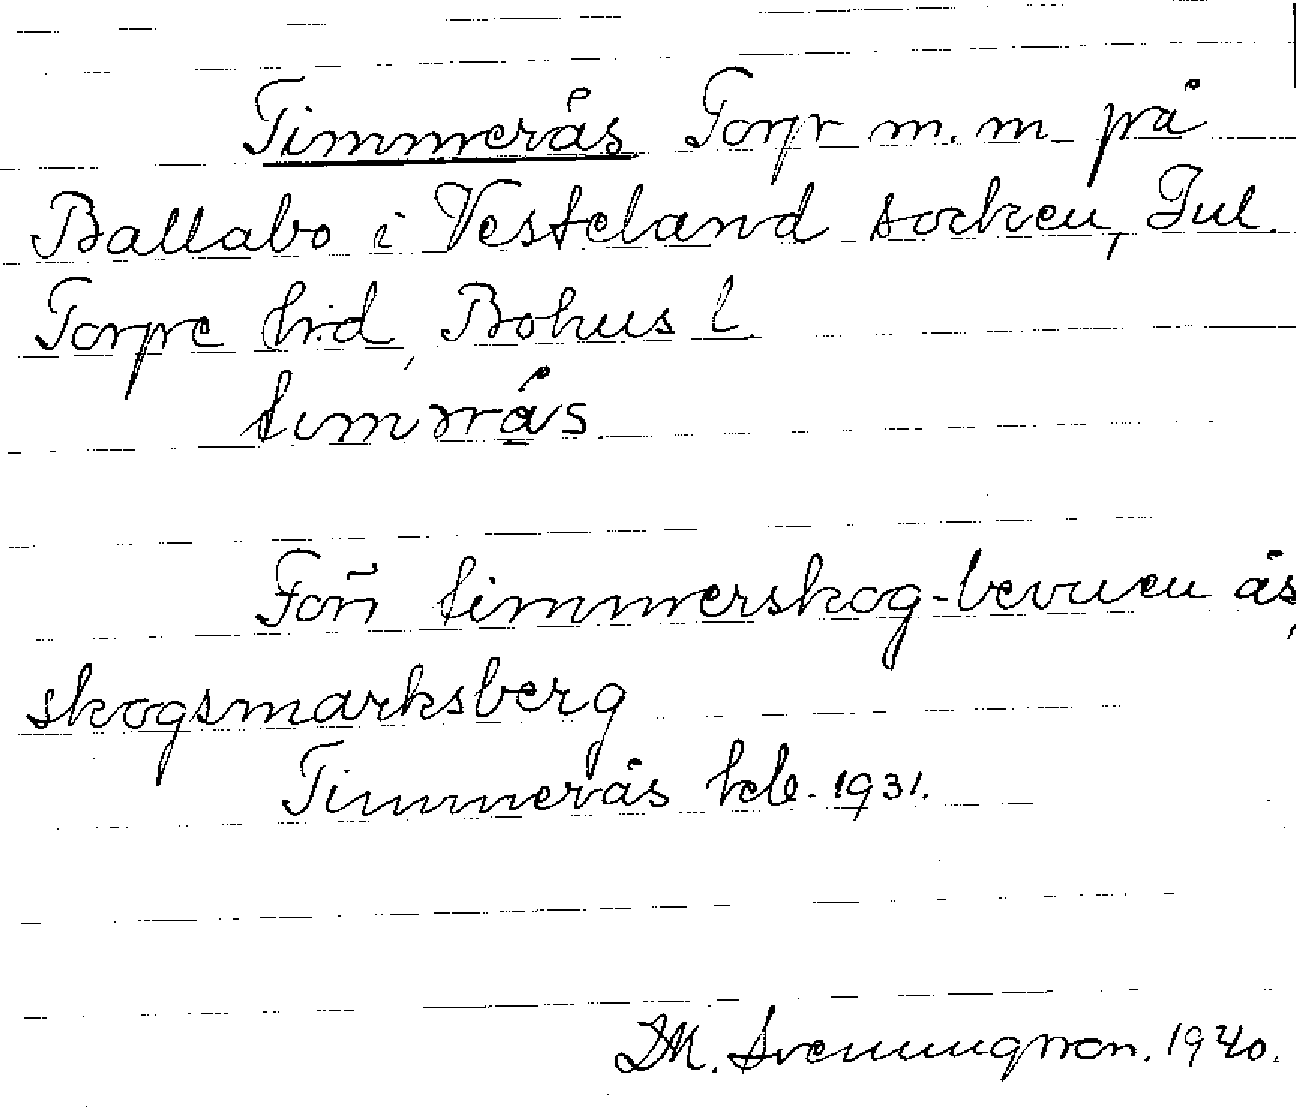 Timmerås Torp m. m på
Ballabo i Vesteland socken, Jul.
Torpe hrd, Bohus l.
timrås
Forn timmerskog-bevuen ås,
skogsmarksberg
Timmerås kb. 1931.
DM. Svenungsson. 1940.